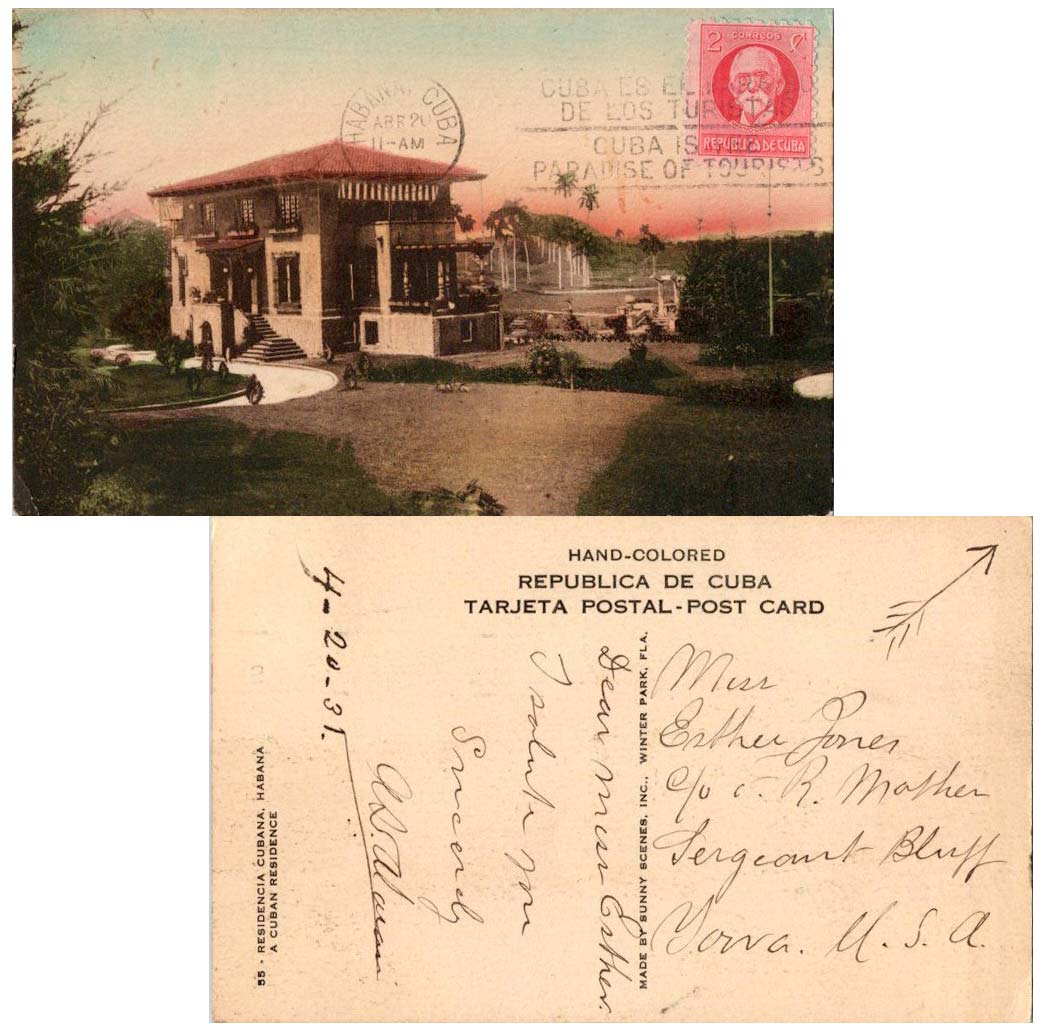 2 CORREOS ¢
REPUBLICA DE CUBA
HABANA, CUBA
ABR 20
11-AM
CUBA ES EL
DE LOS TURISTAS
CUBA IS THE
PARADISE OF TOURISTS
HAND-COLORED
REPUBLICA DE CUBA
TARJETA POSTAL-POST CARD
4-20-31.
Dear Miss Esther.
I salute you
Sincerely
MADE BY SUNNY SCENES, INC., WINTER PARK, FLA.
Miss
Esther Jones
c/o R. Mother
Sergeant Bluff
Iowa. U. S. A.
55 - RESIDENCIA CUBANA, HABANA
A CUBAN RESIDENCE